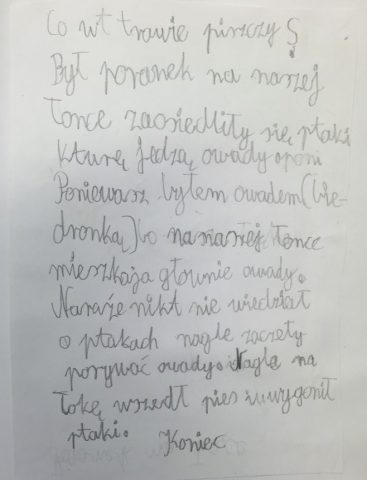 Co wt trawie pirzczy ?
Był poranek na naszej
Tonce zaosiedliły się ptaki
kturę jedzą owady
Poniewasz byłem owadem (bie-
dronką) bo na naszej Tonce
mieszkają głównie owady.
Naraże nikt nie wiedział
o ptakach nagle zaczęły
porywać owady. Nagle na
Tokę wszedł pies i wygonił
ptaki. Koniec